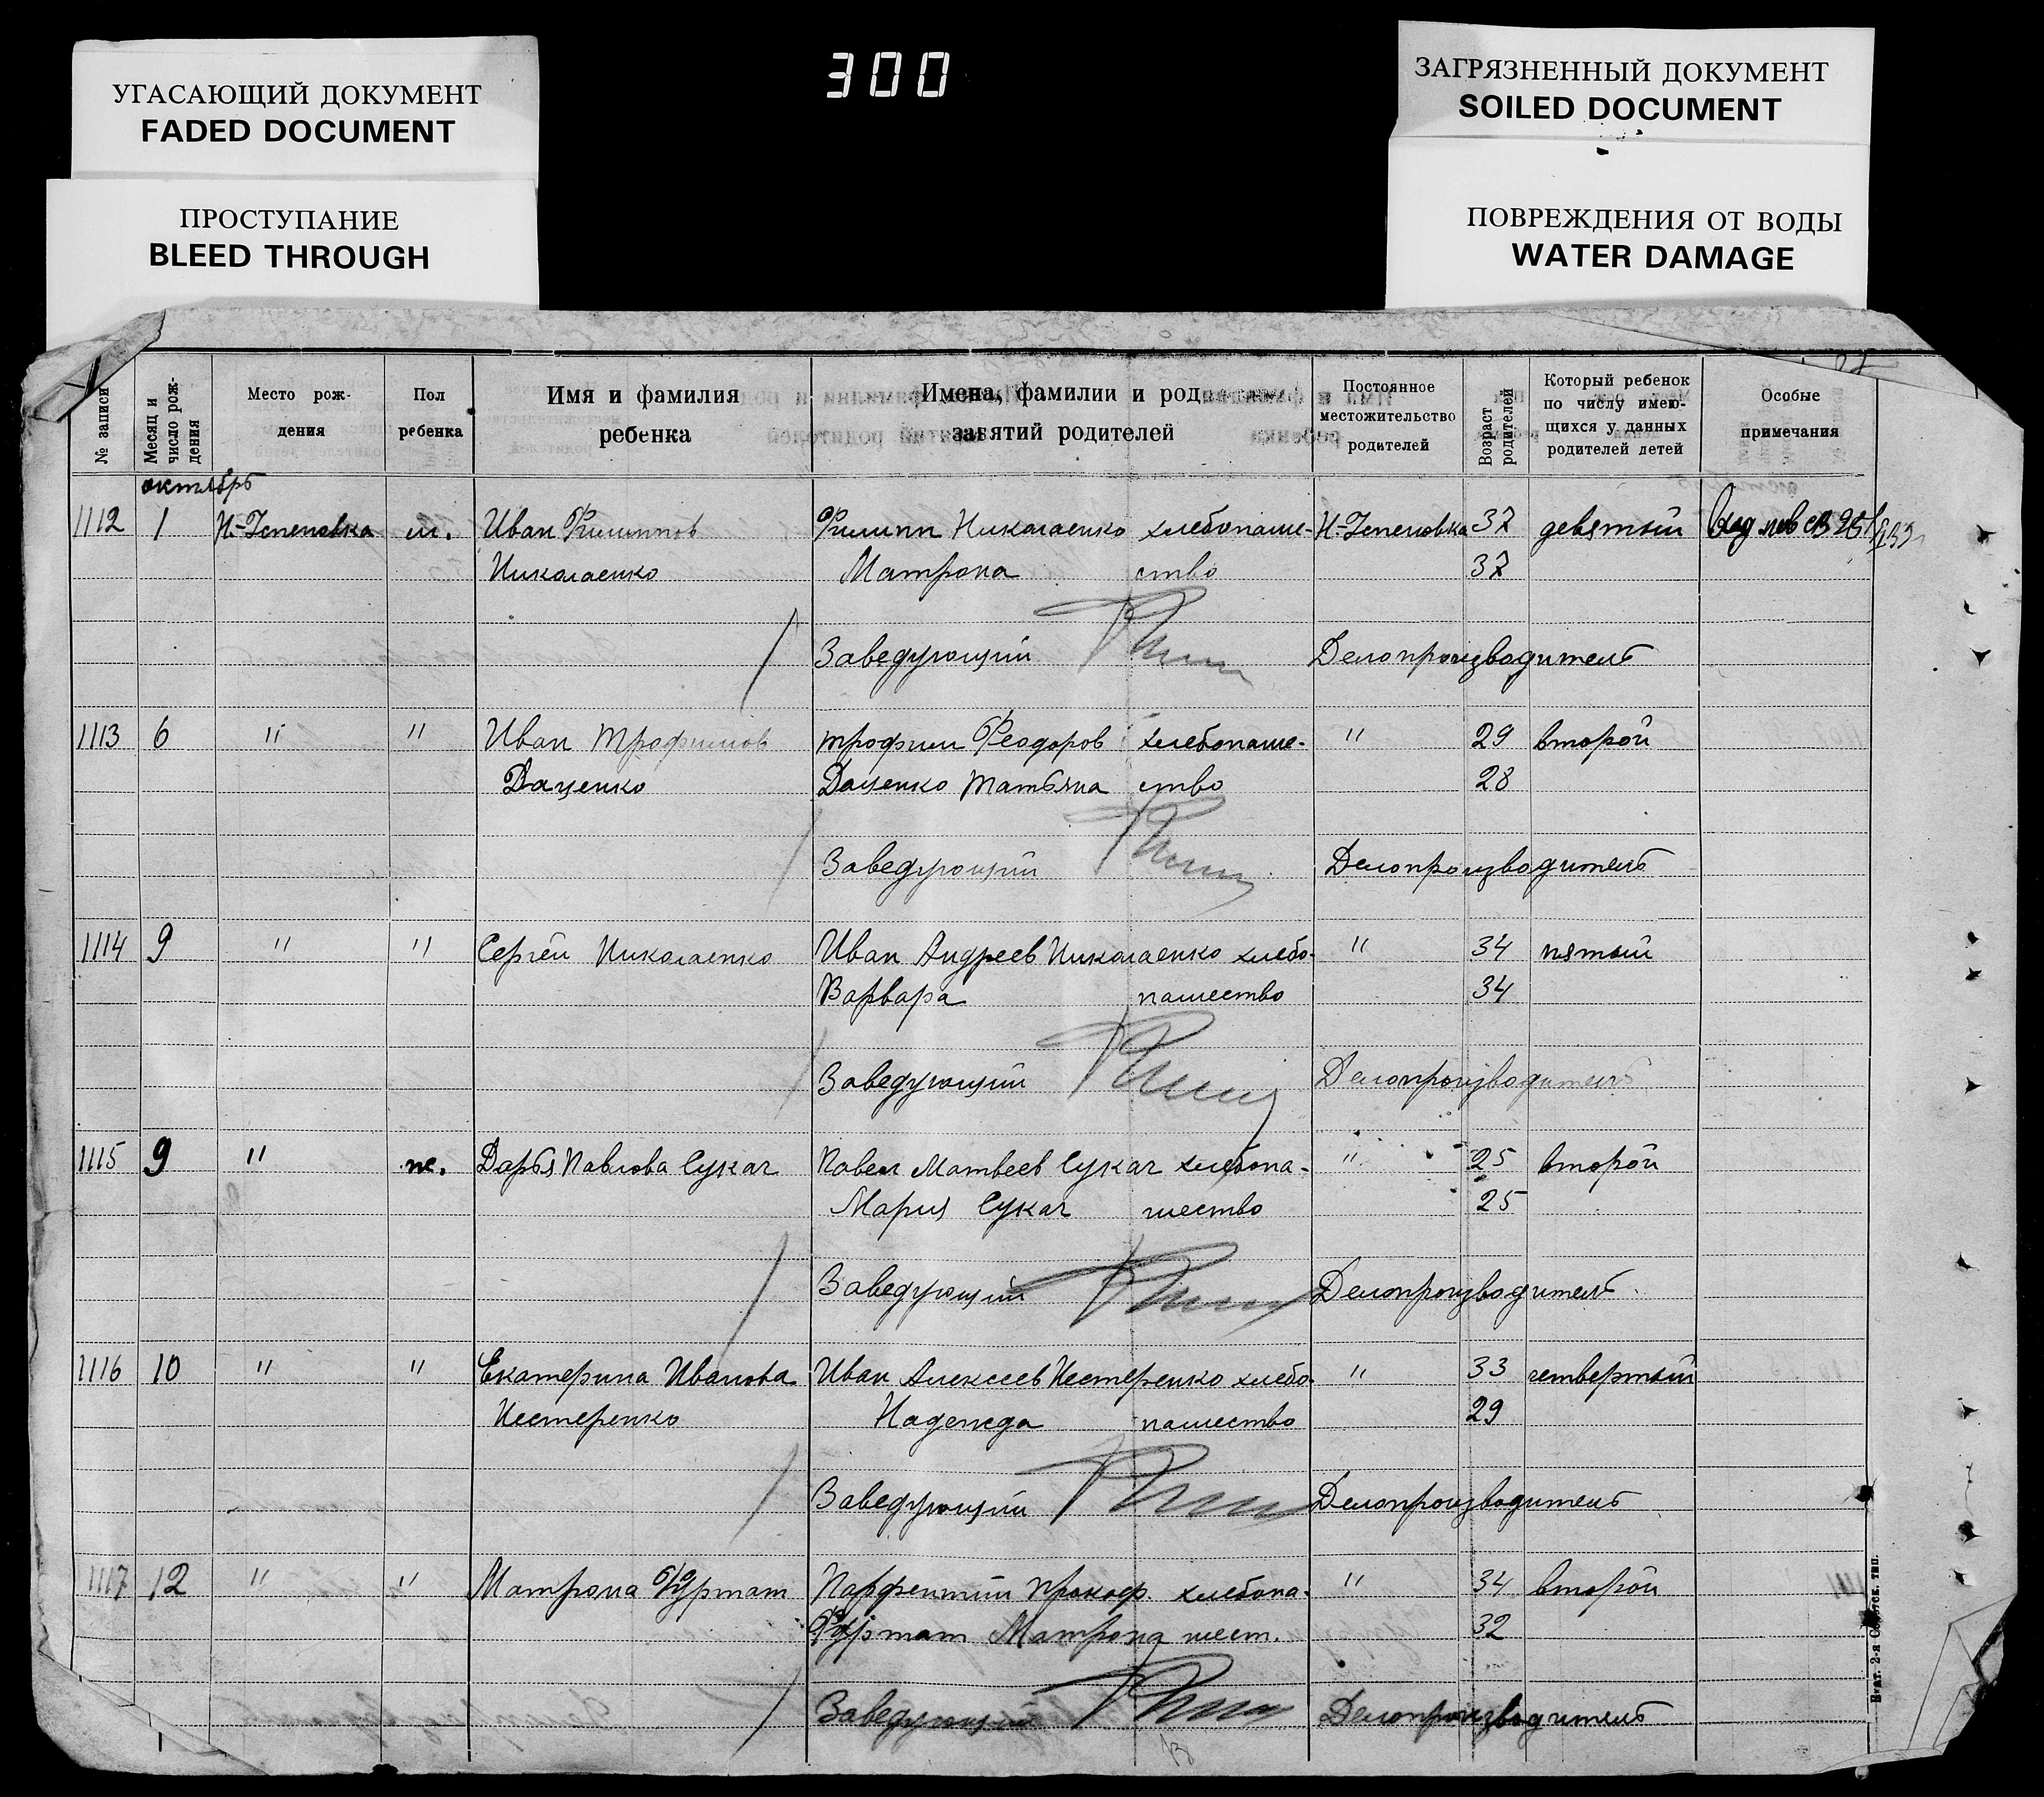 УГАСАЮЩИЙ ДОКУМЕНТ
FADED DOCUMENT
ПРОСТУПАНИЕ
BLEED THROUGH
300
ЗАГРЯЗНЕННЫЙ ДОКУМЕНТ
SOILED DOCUMENT
ПОВРЕЖДЕНИЯ ОТ ВОДЫ
WATER DAMAGE
№ записи
Месяц и число рож-дения
Место рож-дения
Пол ребенка
Имя и фамилия ребенка
Имена, фамилии и род занятий родителей
Постоянное местожительство родителей
Возраст родителей
Который ребенок по числу имею-щихся у данных родителей детей
Особые примечания
октябрь
1112 1 м. Иван Филиппов Филипп Николаенко хлебопаше- 37 девятый
Николаенко Матрона ство 37
Заведующий Делопроизводитель
1113 6 " " Иван Трофимов Трофим Феодоров хлебопаше- " 29 второй
Даценко Даценко Татьяна ство 28
Заведующий Делопроизводитель
1114 9 " " Сергей Николаенко Иван Андреев Николаенко хлебо- " 34 пятый
Варвара пашество 34
Заведующий Делопроизводитель
1115 9 " ж. Дарья Павлова Сукач Павел Матвеев Сукач хлебопа- " 25 второй
Мария Сукач шество 25
Заведующий Делопроизводитель
1116 10 " " Екатерина Иванова Иван Алексеев Нестеренко хлебо- " 33 четвертый
Нестеренко Надежда пашество 29
Заведующий Делопроизводитель
1117 12 " " Матрона Фуртат Парфентий Прокоф. хлебопа- " 34 второй
Фуртат Матрона шест. 32
Заведующий Делопроизводитель